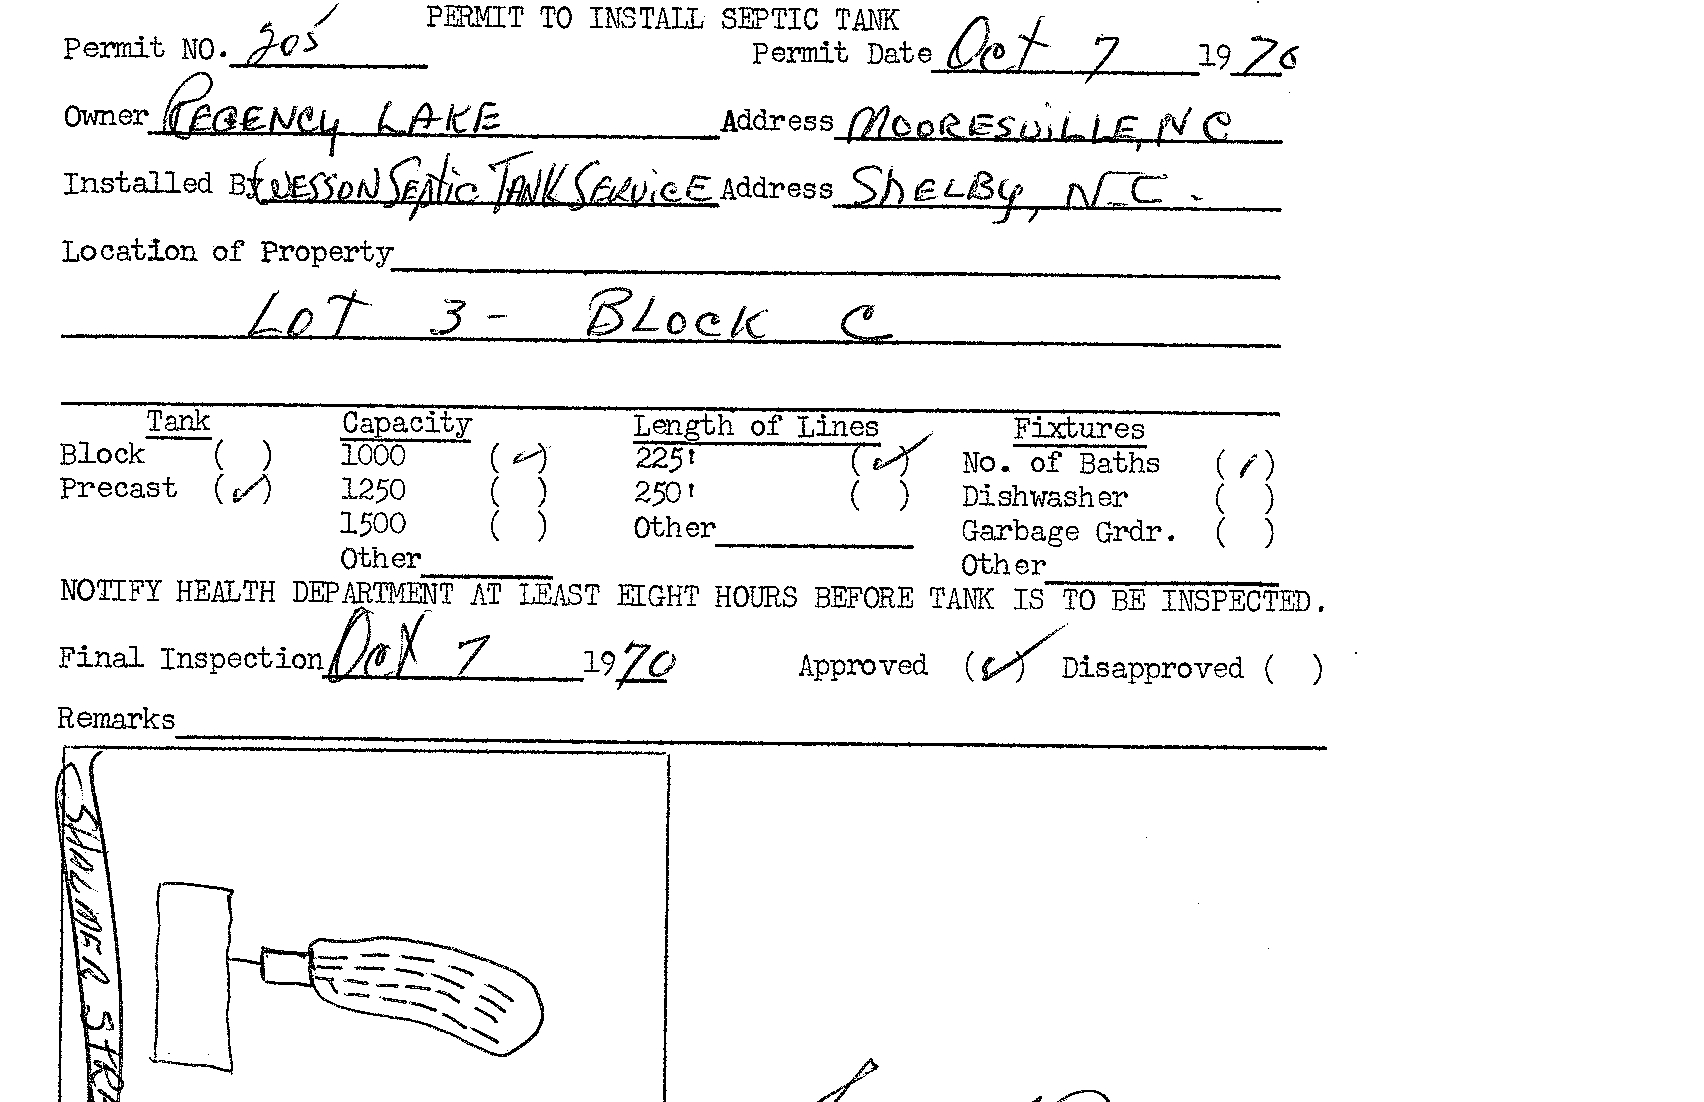 PERMIT TO INSTALL SEPTIC TANK
Permit NO. 205 Permit Date Oct 7 1970
Owner REGENCY LAKE Address MOORESVILLE, N C
Installed By WESSON SEPTIC TANK SERVICE Address SHELBY, N.C.
Location of Property
LOT 3 - BLOCK C
Tank Capacity Length of Lines Fixtures
Block ( ) 1000 (✓) 225' (✓) No. of Baths (1)
Precast (✓) 1250 ( ) 250' ( ) Dishwasher ( )
1500 ( ) Other Garbage Grdr. ( )
Other Other
NOTIFY HEALTH DEPARTMENT AT LEAST EIGHT HOURS BEFORE TANK IS TO BE INSPECTED.
Final Inspection Oct 7 1970 Approved (✓) Disapproved ( )
Remarks